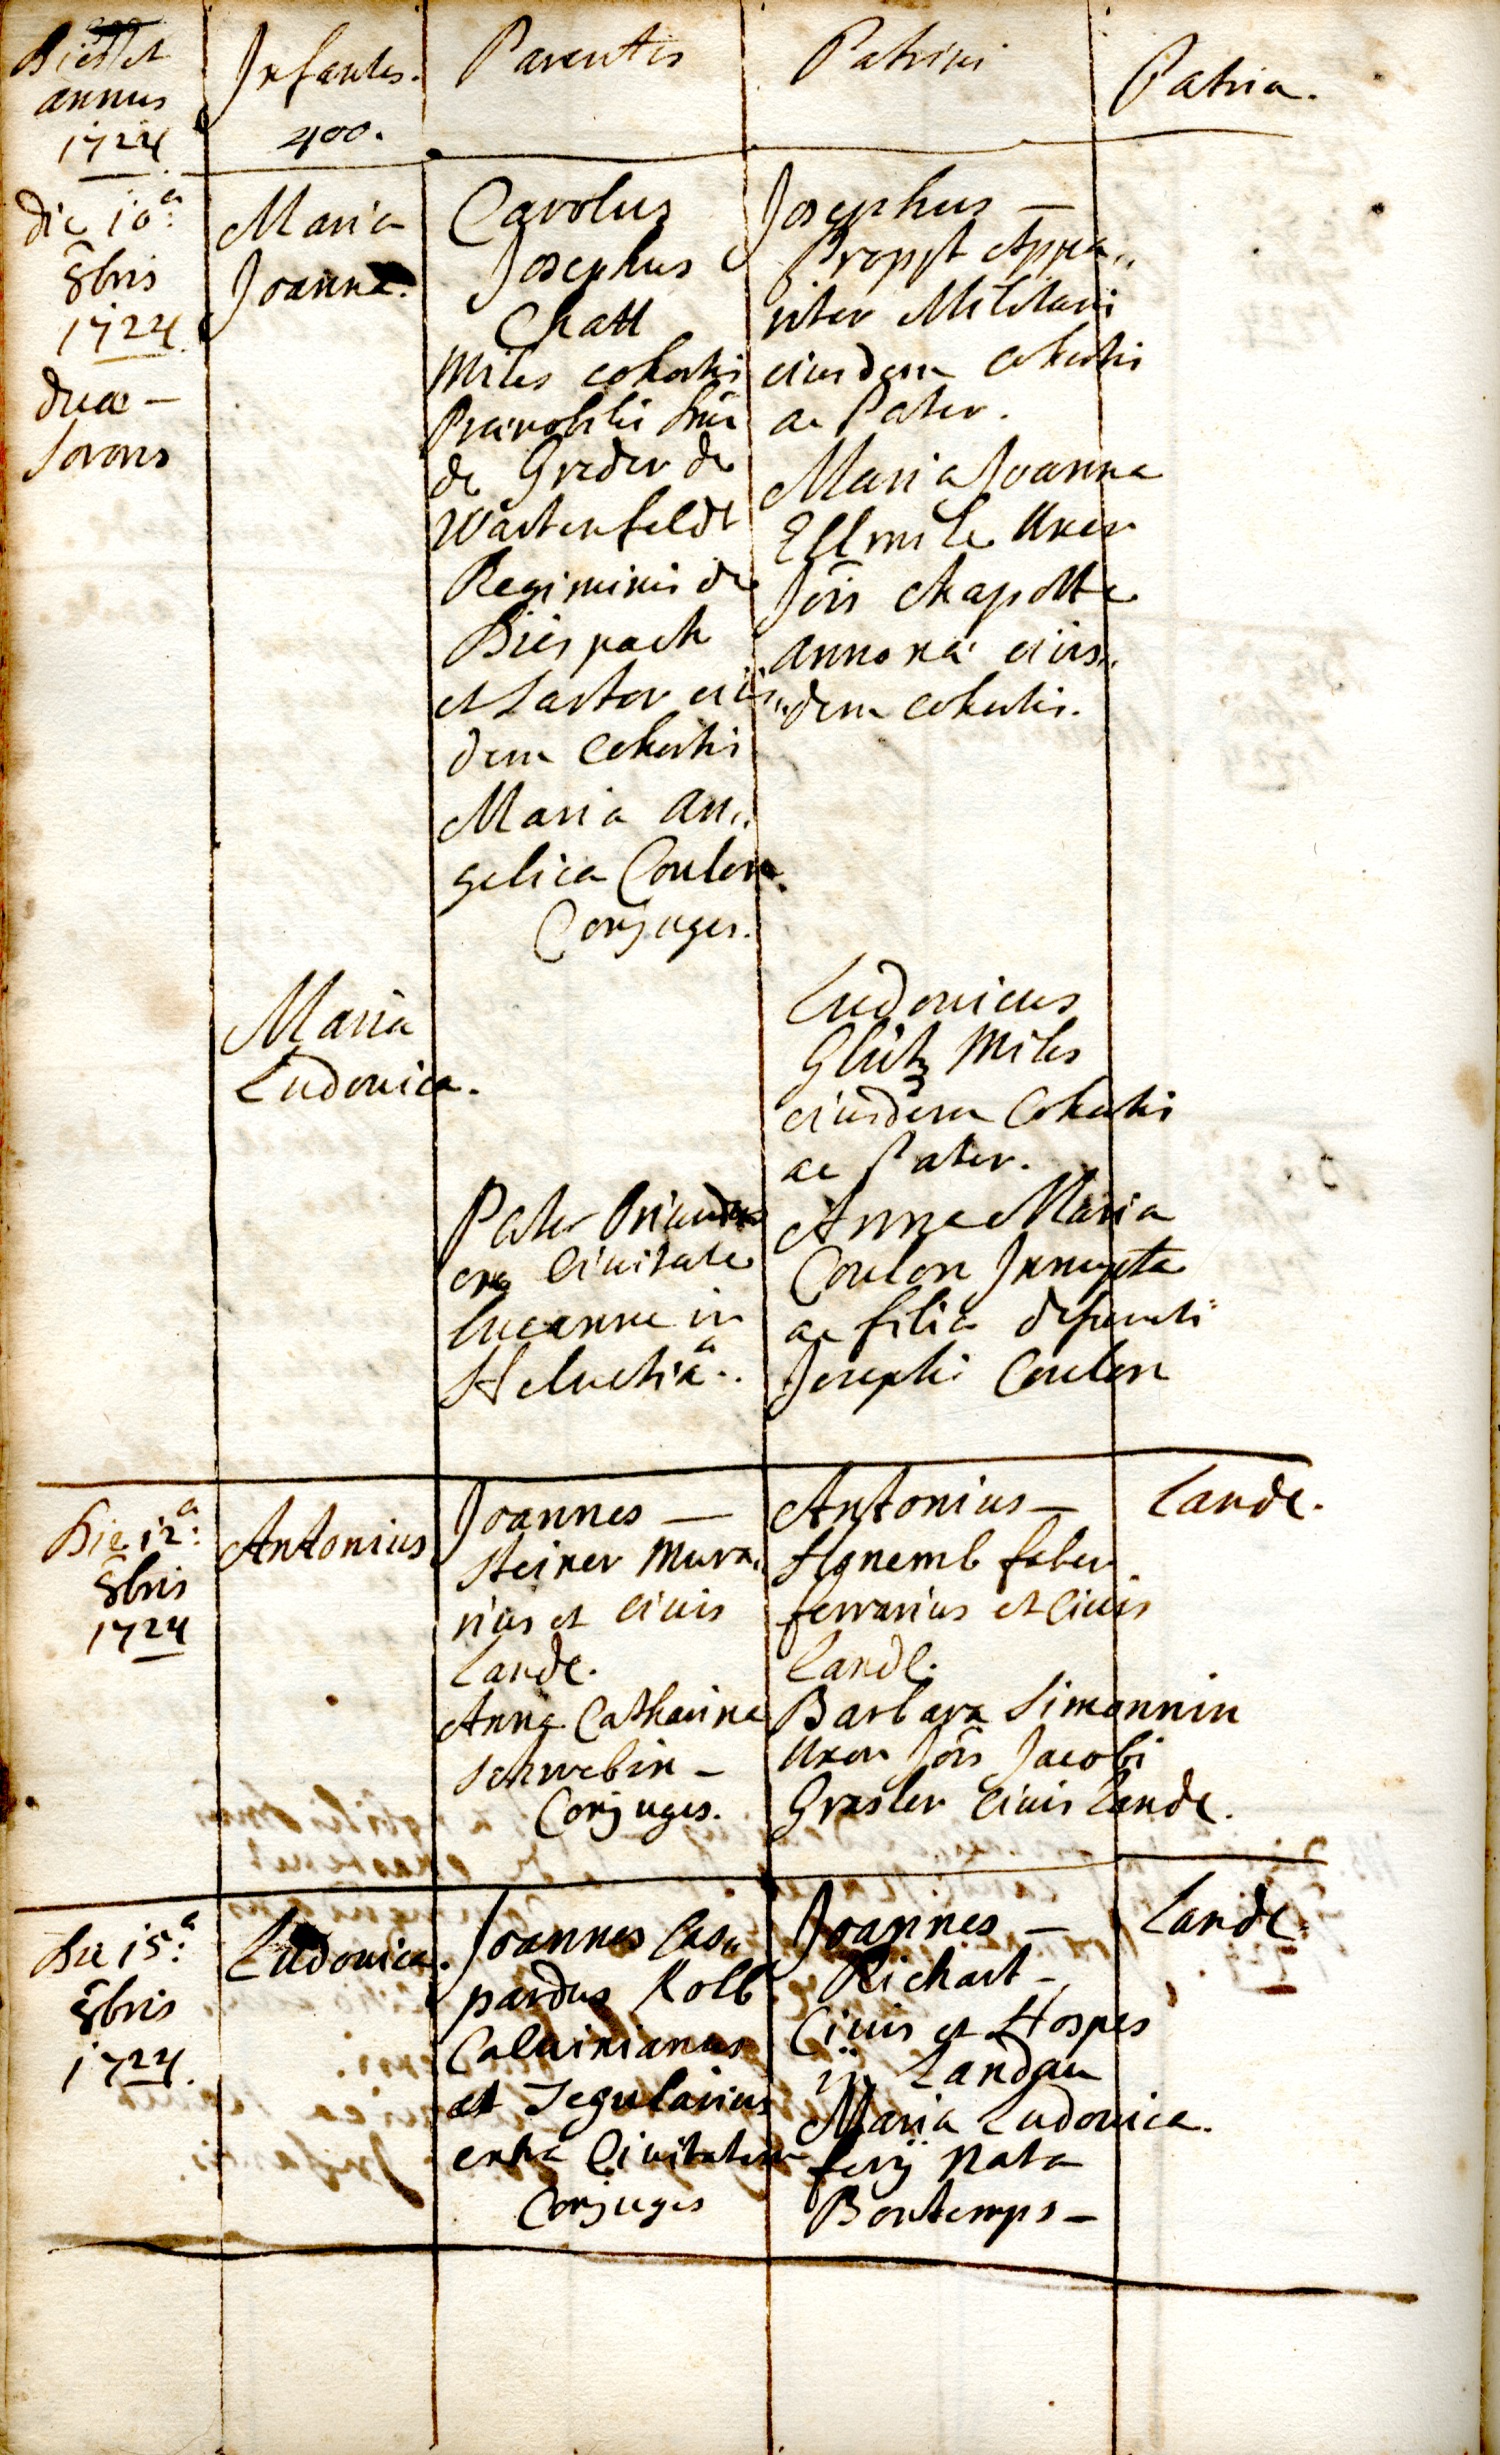 Dies et
annus
1724
Infantes.
400.
Parentes
Patrini
Patria.
Die 10ᵃ:
8bris
1724.
duæ —
Sorores
Maria
Joanna.
Carolus
Josephus
Chatt
Miles cohortis
Prænobilis Dni
de Greder de
Wartenfeldt
Regiminis de
Diespach
et Sartor eius„
dem Cohortis
Maria an„
gelica Coulon.
Conjuges.
Josephus —
Proppst Appa„
ritor Militaris
eiusdem cohortis
ac Pater.
Maria Joanna
Uxor
Jōis chapotte
annona eius„
dem cohortis.
Maria
Ludovica.
Pater Oriundus
ex Civitate
Lucerne in
Helvetiâ.
Ludovicus
Glütz Miles
eiusdem Cohortis
ac Pater.
Anna Maria
Coulon Innupta
ac filia defuncti
Josephi Coulon
Die 12ᵃ:
8bris
1724
Antonius
Joannes —
Steiner Mura„
rius et civis
Landæ.
Anna Catharina
Schwebin —
Conjuges.
Antonius —
Honemb faber
ferrarius et Civis
Landæ.
Barbara Simonnin
Uxor Jōis Jacobi
Grasler Civis Landæ.
Landæ.
Die 15ᵃ:
8bris
1724.
Ludovica.
Joannes Cas„
pardus Kolb
Calvinianus
et Tegularius
extra Civitatem
Conjuges
Joannes —
Richart —
Civis et Hospes
in Landau
Maria Ludovica.
ferÿ Nata
Bontemps —
Landæ.